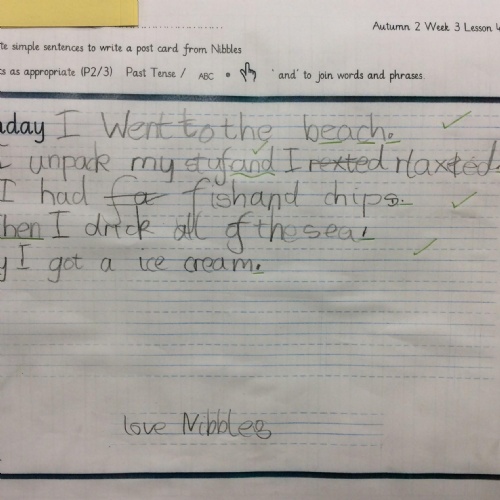 Autumn 2 Week 3 Lesson 4
te simple sentences to write a post card from Nibbles
ts as appropriate (P2/3) Past Tense / ABC • ' and' to join words and phrases.
nday I Went to the beach.
I unpack my styf and I rexted rlaxted.
I had fa fish and chips.
hen I drick all of the sea!
y I got a ice cream.
love Nibbles